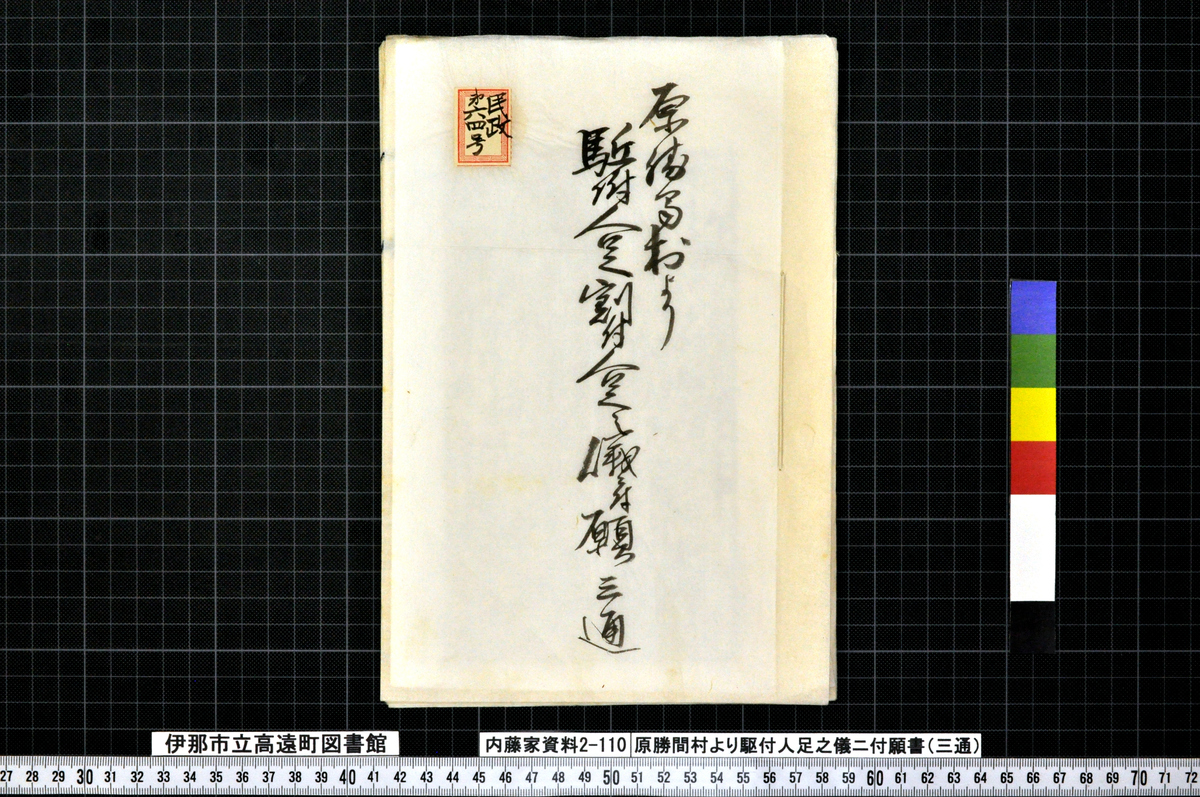 原勝間村より
駈附人足割付人足之儀ニ付願三通
民政
第六四号
伊那市立高遠町図書館
内藤家資料2-110 原勝間村より駆付人足之儀ニ付願書(三通)
27 28 29 30 31 32 33 34 35 36 37 38 39 40 41 42 43 44 45 46 47 48 49 50 51 52 53 54 55 56 57 58 59 60 61 62 63 64 65 66 67 68 69 70 71 72